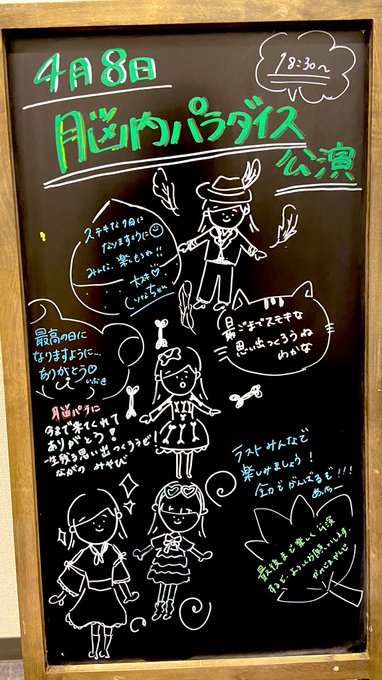 4月8日
18:30〜
脳内パラダイス
公演
ステキな1日に
なりますように
みんな、楽しもうね!!
大スキ♡
最高の日に
なりますように…
ありがとう♡
いぶき
最ごまでステキな
思い出つくろうね
わかな
脳パラに
今まで来てくれて
ありがとう!
一生残る思い出つくろうぜ
ながの みそび
ラストみんなで
楽しみましょう!
全力でがんばるぞ!!!
最後まで楽しい公演